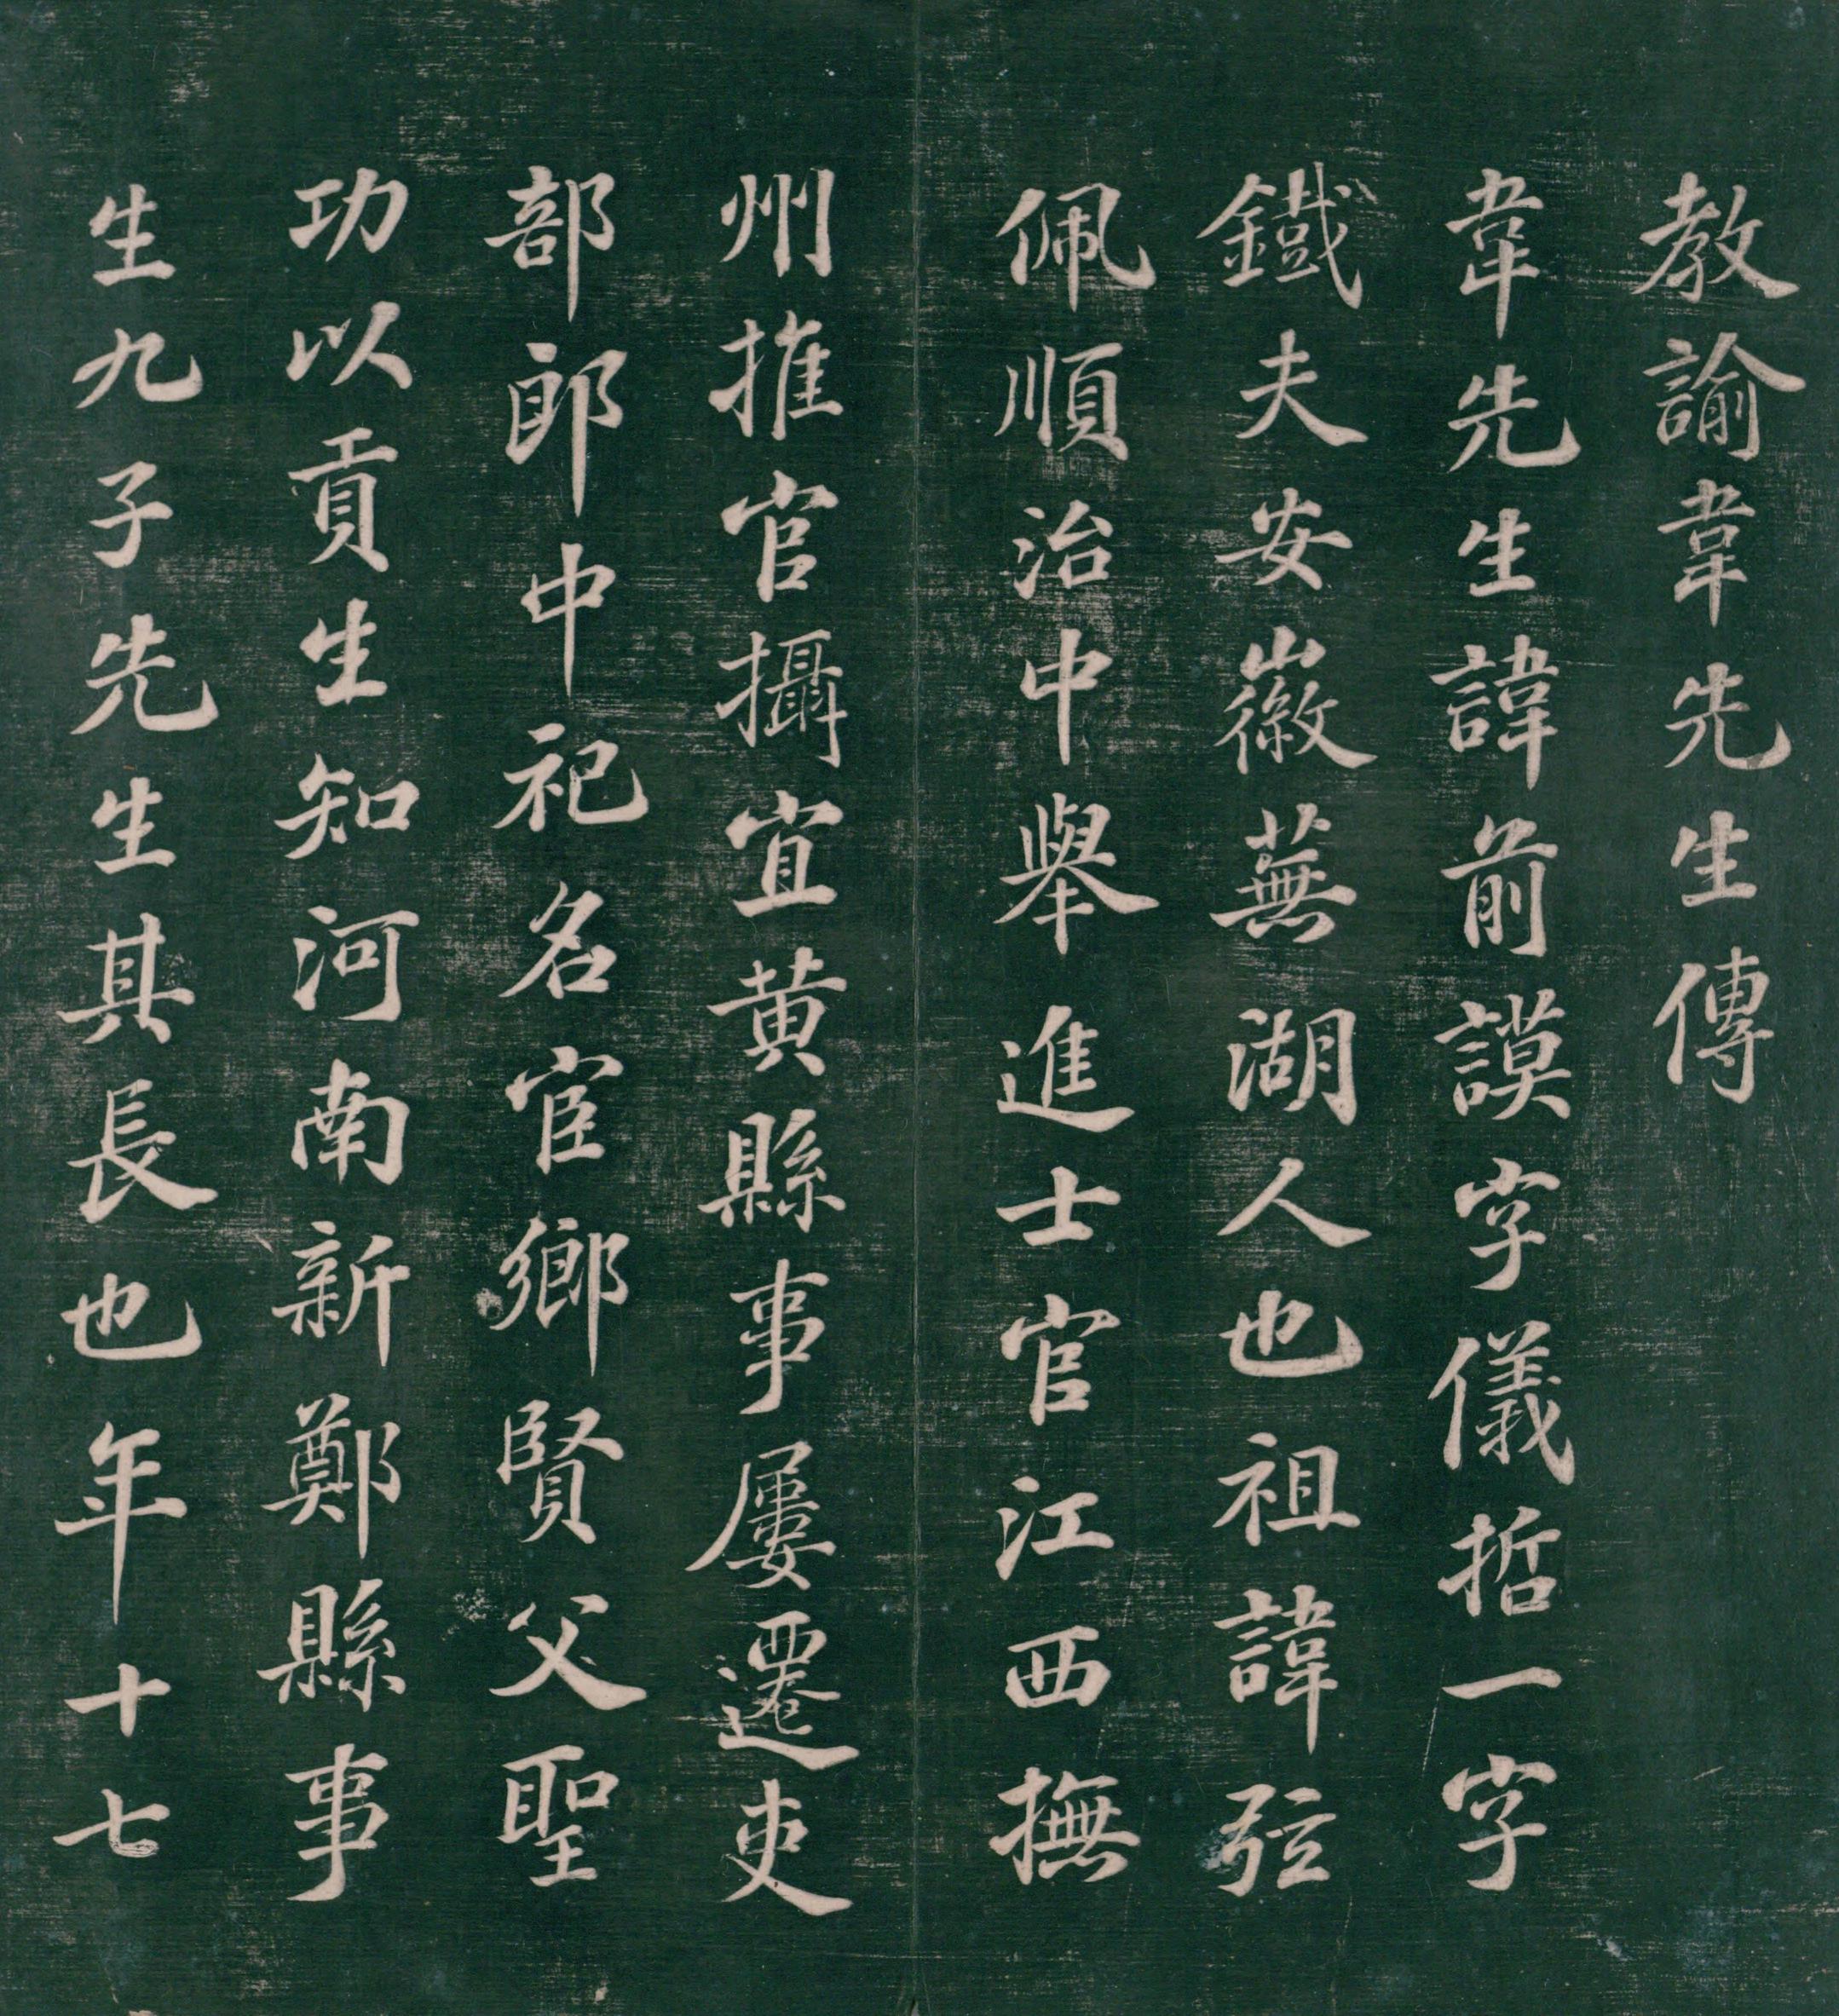 教諭韋先生傳
韋先生諱前謨字儀哲一字
鐵夫安徽蕪湖人也祖諱弦
佩順治中舉進士官江西撫
州推官攝宜黄縣事屢遷吏
部郎中祀名宦鄉賢父聖
功以貢生知河南新鄭縣事
生九子先生其長也年十七